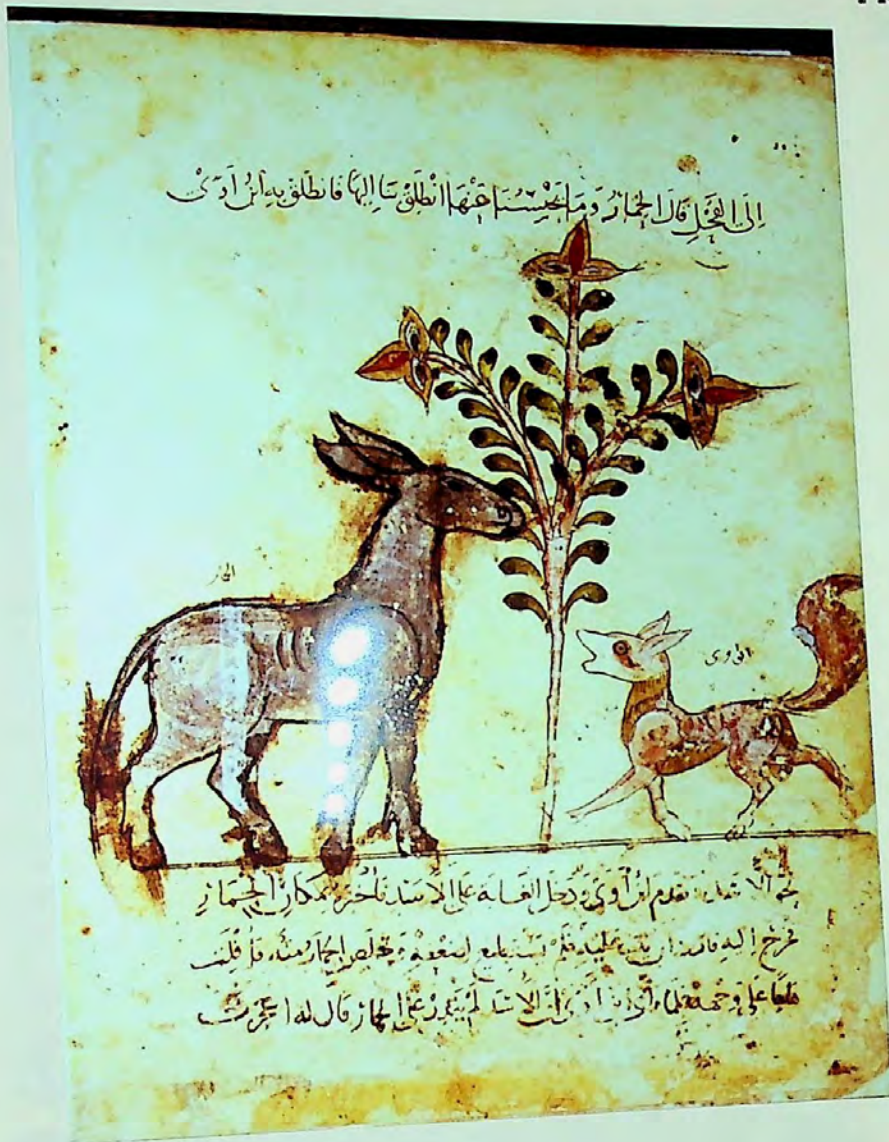 إلى الفحل قال الحمار وما يحبسنا عنها انطلق بنا إليها فانطلق به ابن آوى
الحمار
ابن اوى
نحو الأسد تقدم ابن آوى ودخل الغابة على الأسد فأخبره بمكان الحمار
فخرج إليه فاراد ان يثب عليه فلم يستطع لضعفه وتخلص الحمار منه فأفلت
هلعا على وجهه فلما رأى ابن آوى أن الأسد لم يقدر على الحمار قال له أعجزت